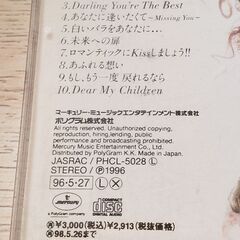 3.Darling You're The Best
4.あなたに逢いたくて～Missing You～
5.白いバラをあなたに…
6.未来への扉
7.ロマンティックにKissしましょう!!
8.あふれる想い
9.もし、もう一度 戻れるなら
10.Dear My Children
マーキュリー・ミュージックエンタテインメント株式会社
ポリグラム株式会社
All rights reserved. Unauthorized copying,
reproduction, hiring, lending,
public performance and
broadcasting prohibited.
Mercury Music Entertainment Co., Ltd.
Distributed by PolyGram K.K. Made in Japan.
JASRAC / PHCL-5028 Ⓛ
STEREO / Ⓟ1996
96・5・27 Ⓛ Ⓧ
mercury
a PolyGram company
COMPACT
disc
DIGITAL AUDIO
¥3,000(税込) ¥2,913(税抜価格)
'98.5.26まで